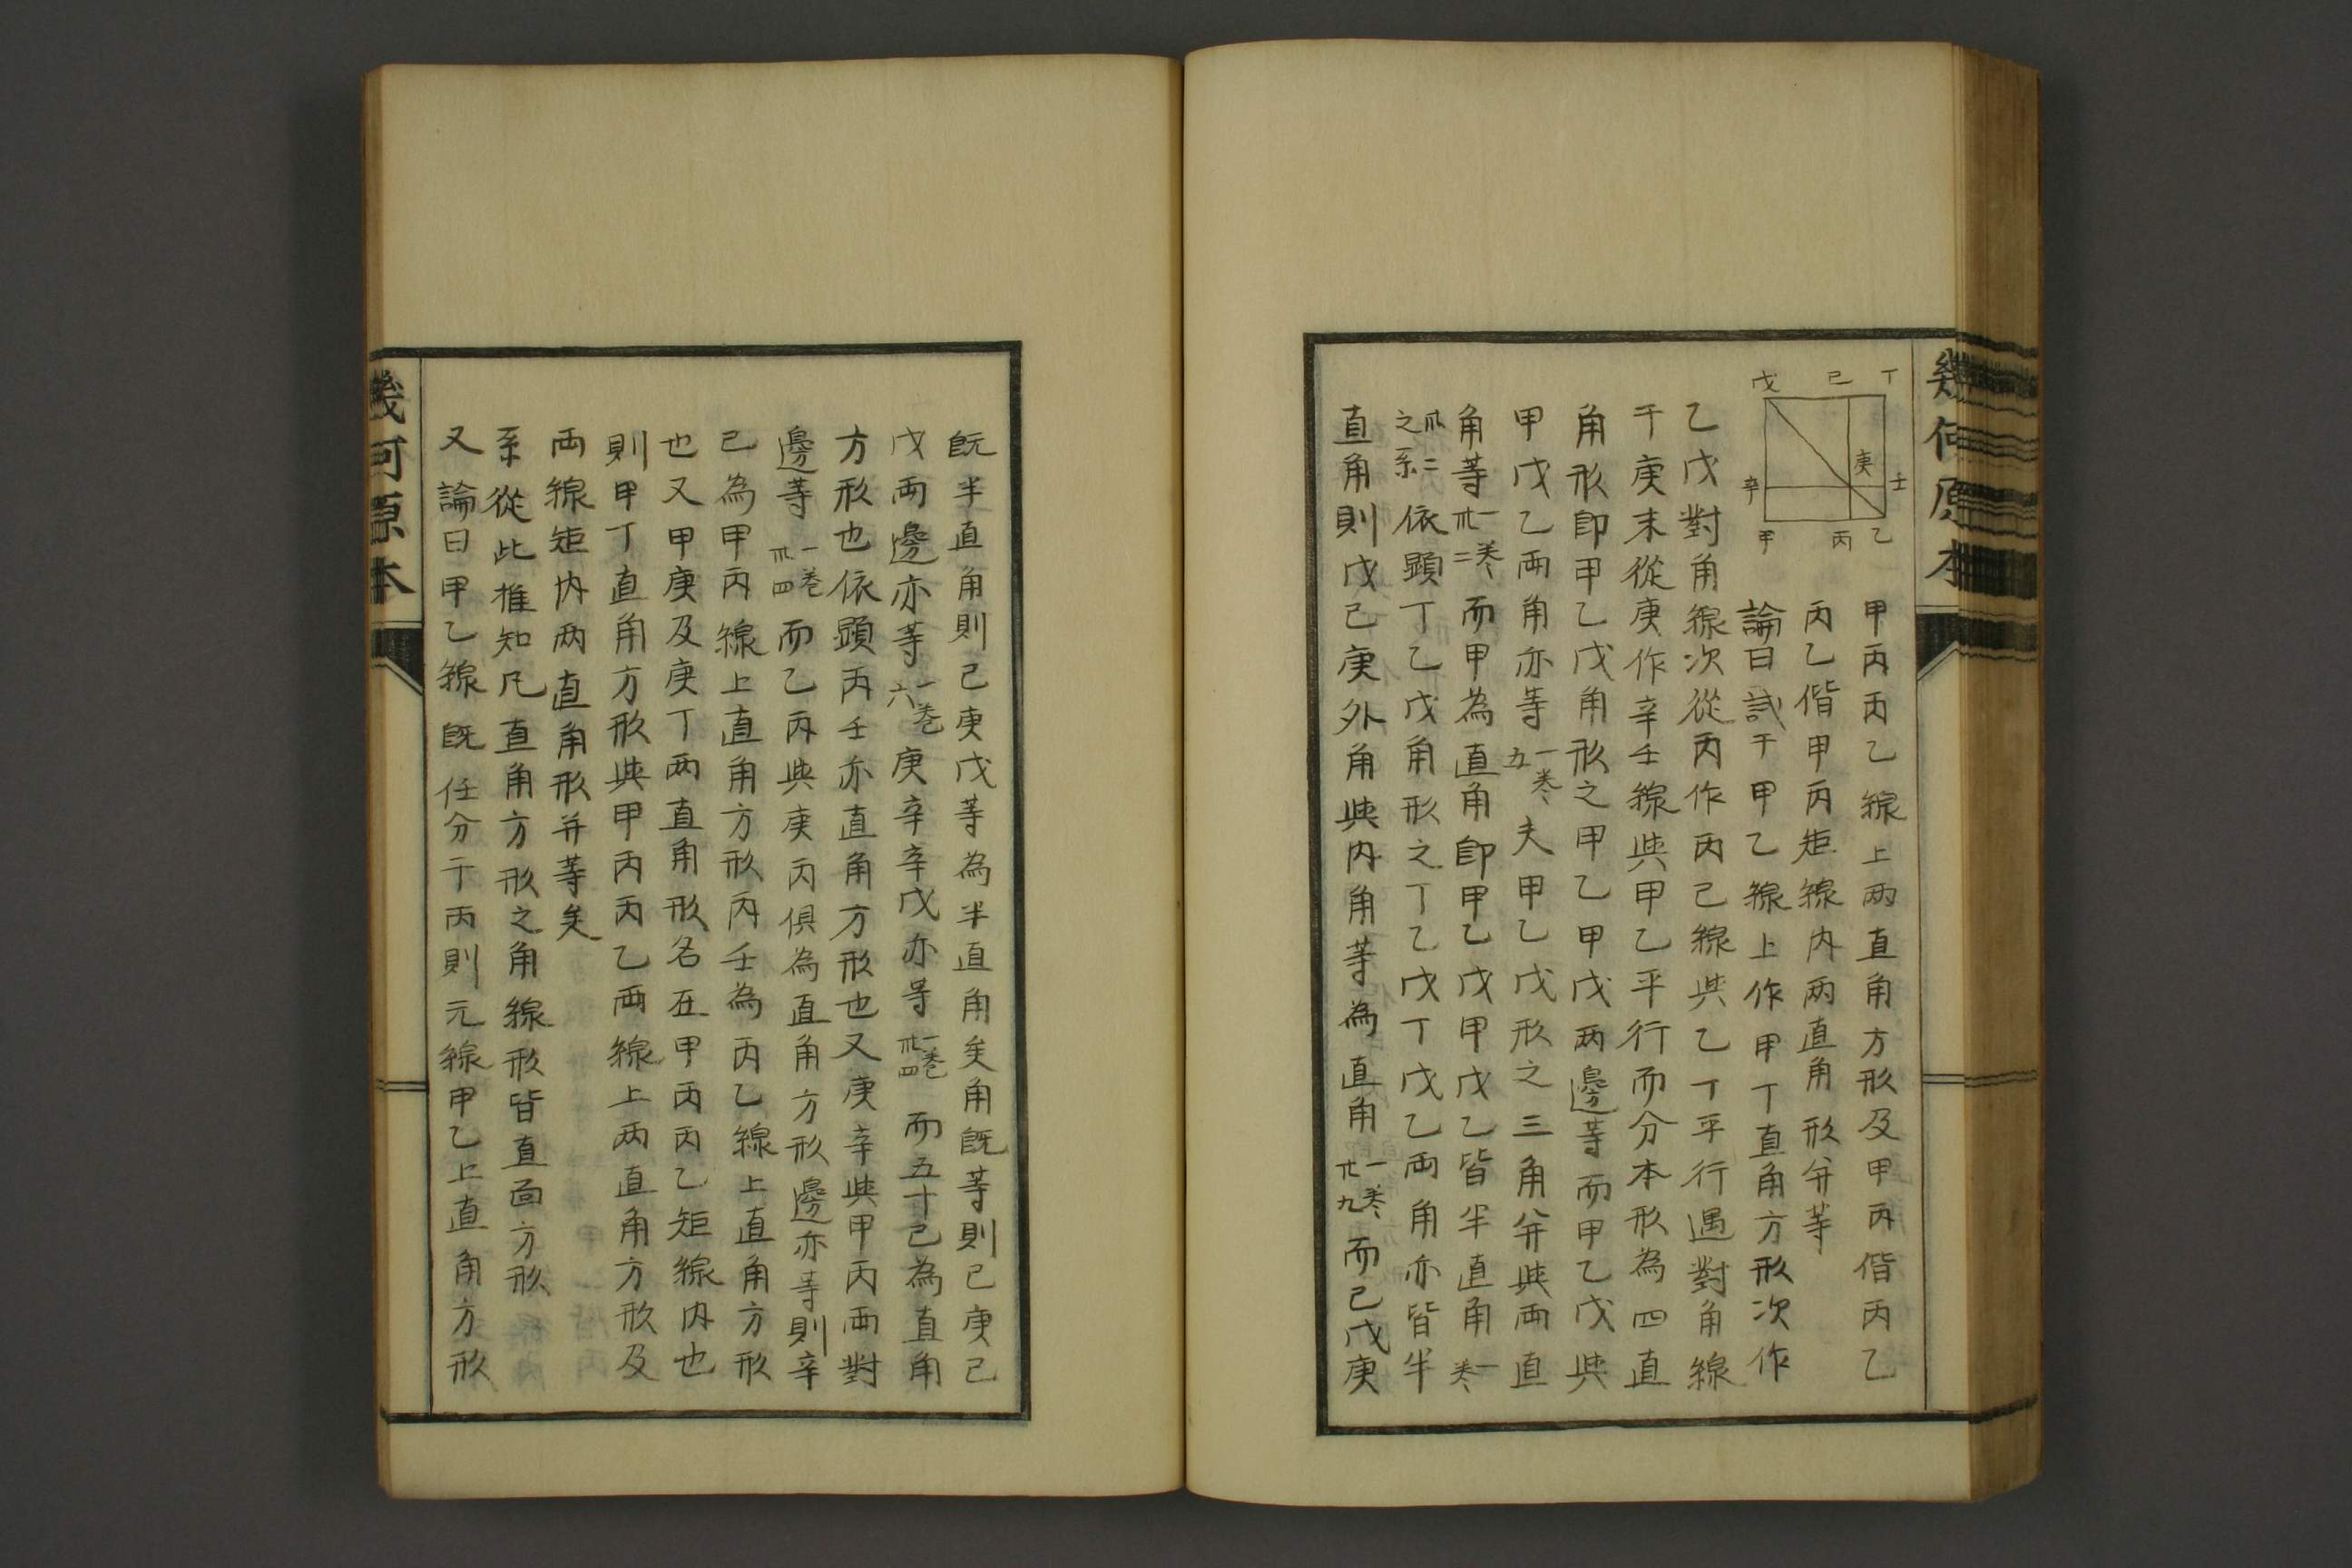 幾何原本
戊 己 丁
庚
辛 壬
甲 丙 乙
甲丙丙乙線上兩直角方形及甲丙偕丙乙
丙乙偕甲丙矩線內兩直角形并等
論曰試于甲乙線上作甲丁直角方形次作
乙戊對角線次從丙作丙己線與乙丁平行遇對角線
于庚末從庚作辛壬線與甲乙平行而分本形為四直
角形卽甲乙戊角形之甲乙甲戊兩邊等而甲乙戊與
甲戊乙兩角亦等一卷五夫甲乙戊形之三角并與兩直
角等一卷卅二而甲為直角卽甲乙戊甲戊乙皆半直角一卷
卅二之系依顯丁乙戊角形之丁乙戊丁戊乙兩角亦皆半
直角則戊己庚外角與內角等為直角一卷卅九而己戊庚
旣半直角則己庚戊等為半直角矣角旣等則己庚己
戊兩邊亦等一卷六庚辛辛戊亦等一卷卅四而五十己為直角
方形也依顯丙壬亦直角方形也又庚辛與甲丙兩對
邊等一卷卅四而乙丙與庚丙俱為直角方形邊亦等則辛
己為甲丙線上直角方形丙壬為丙乙線上直角方形
也又甲庚及庚丁兩直角形名在甲丙丙乙矩線內也
則甲丁直角方形與甲丙丙乙兩線上兩直角方形及
兩線矩內兩直角形并等矣
系從此推知凡直角方形之角線形皆直面方形
又論曰甲乙線旣任分于丙則元線甲乙上直角方形
幾何原本